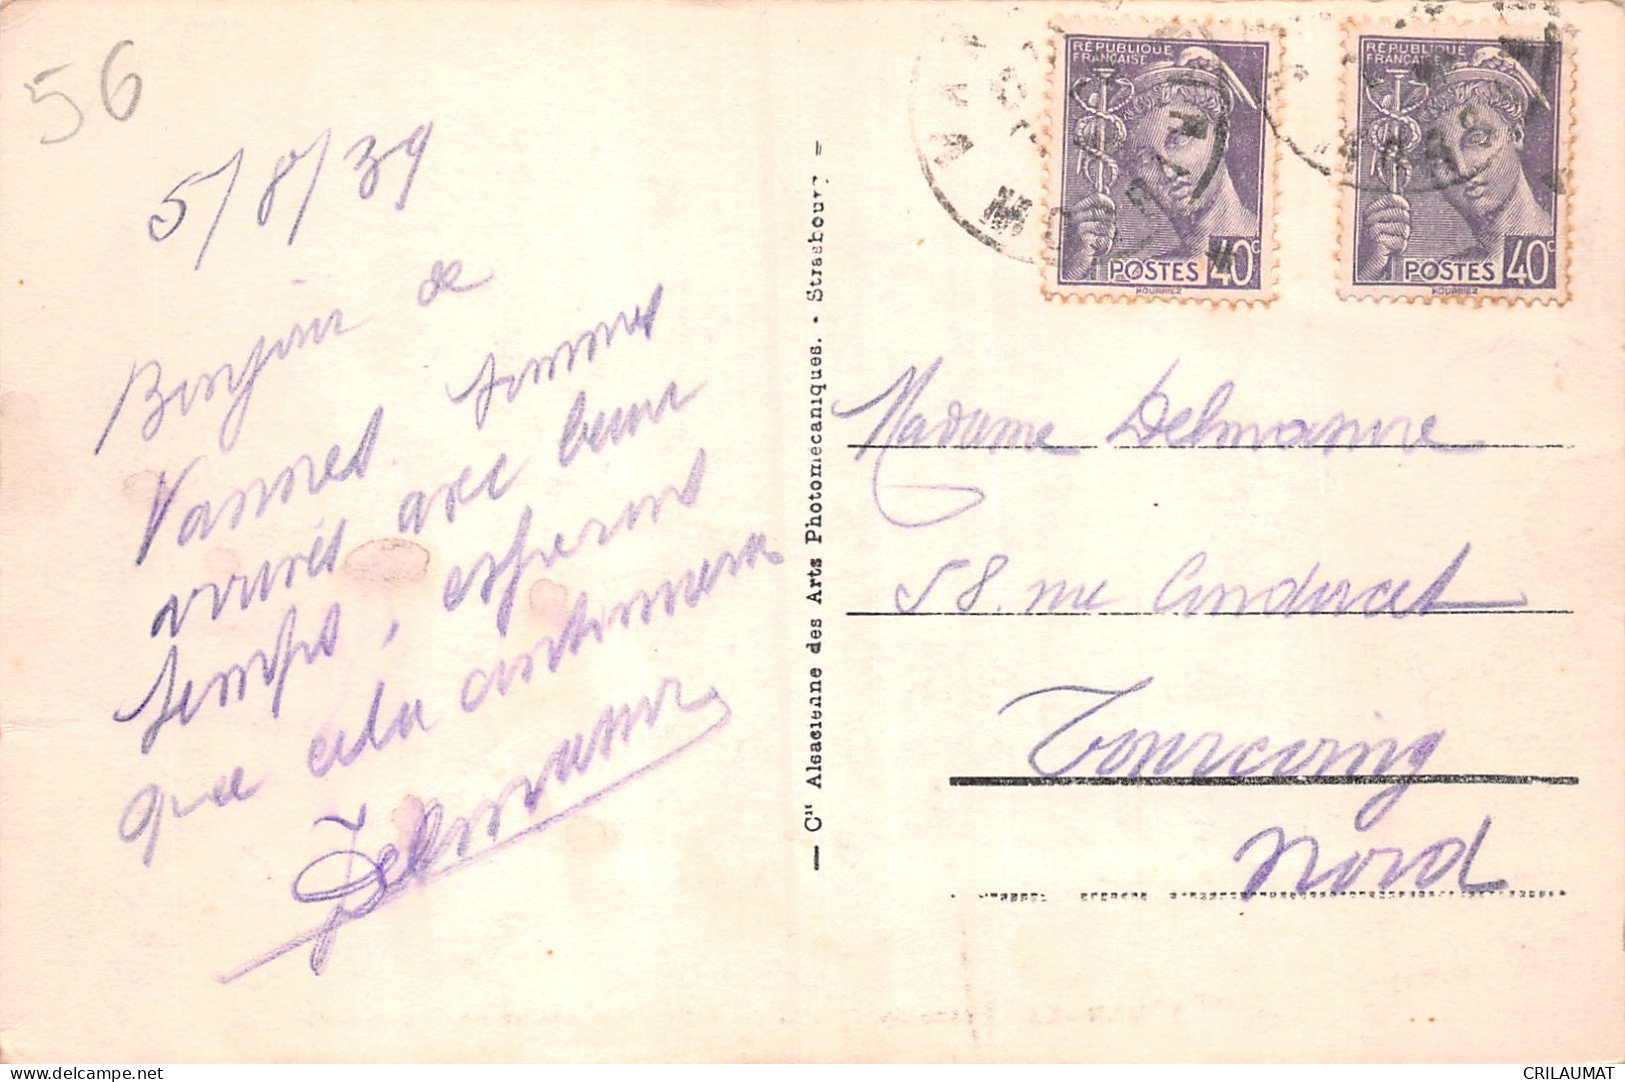 56
5/8/39
Bonjour de
Vannes sommes
arrivés avec beau
temps, espérons
que cela continuera
RÉPUBLIQUE
FRANÇAISE
POSTES 40c
HOURRIEZ
RÉPUBLIQUE
FRANÇAISE
POSTES 40c
HOURRIEZ
— Cie Alsacienne des Arts Photomécaniques. - Strasbourg —
Madame
58, rue Condorcet
Tourcoing
Nord
CRILAUMAT